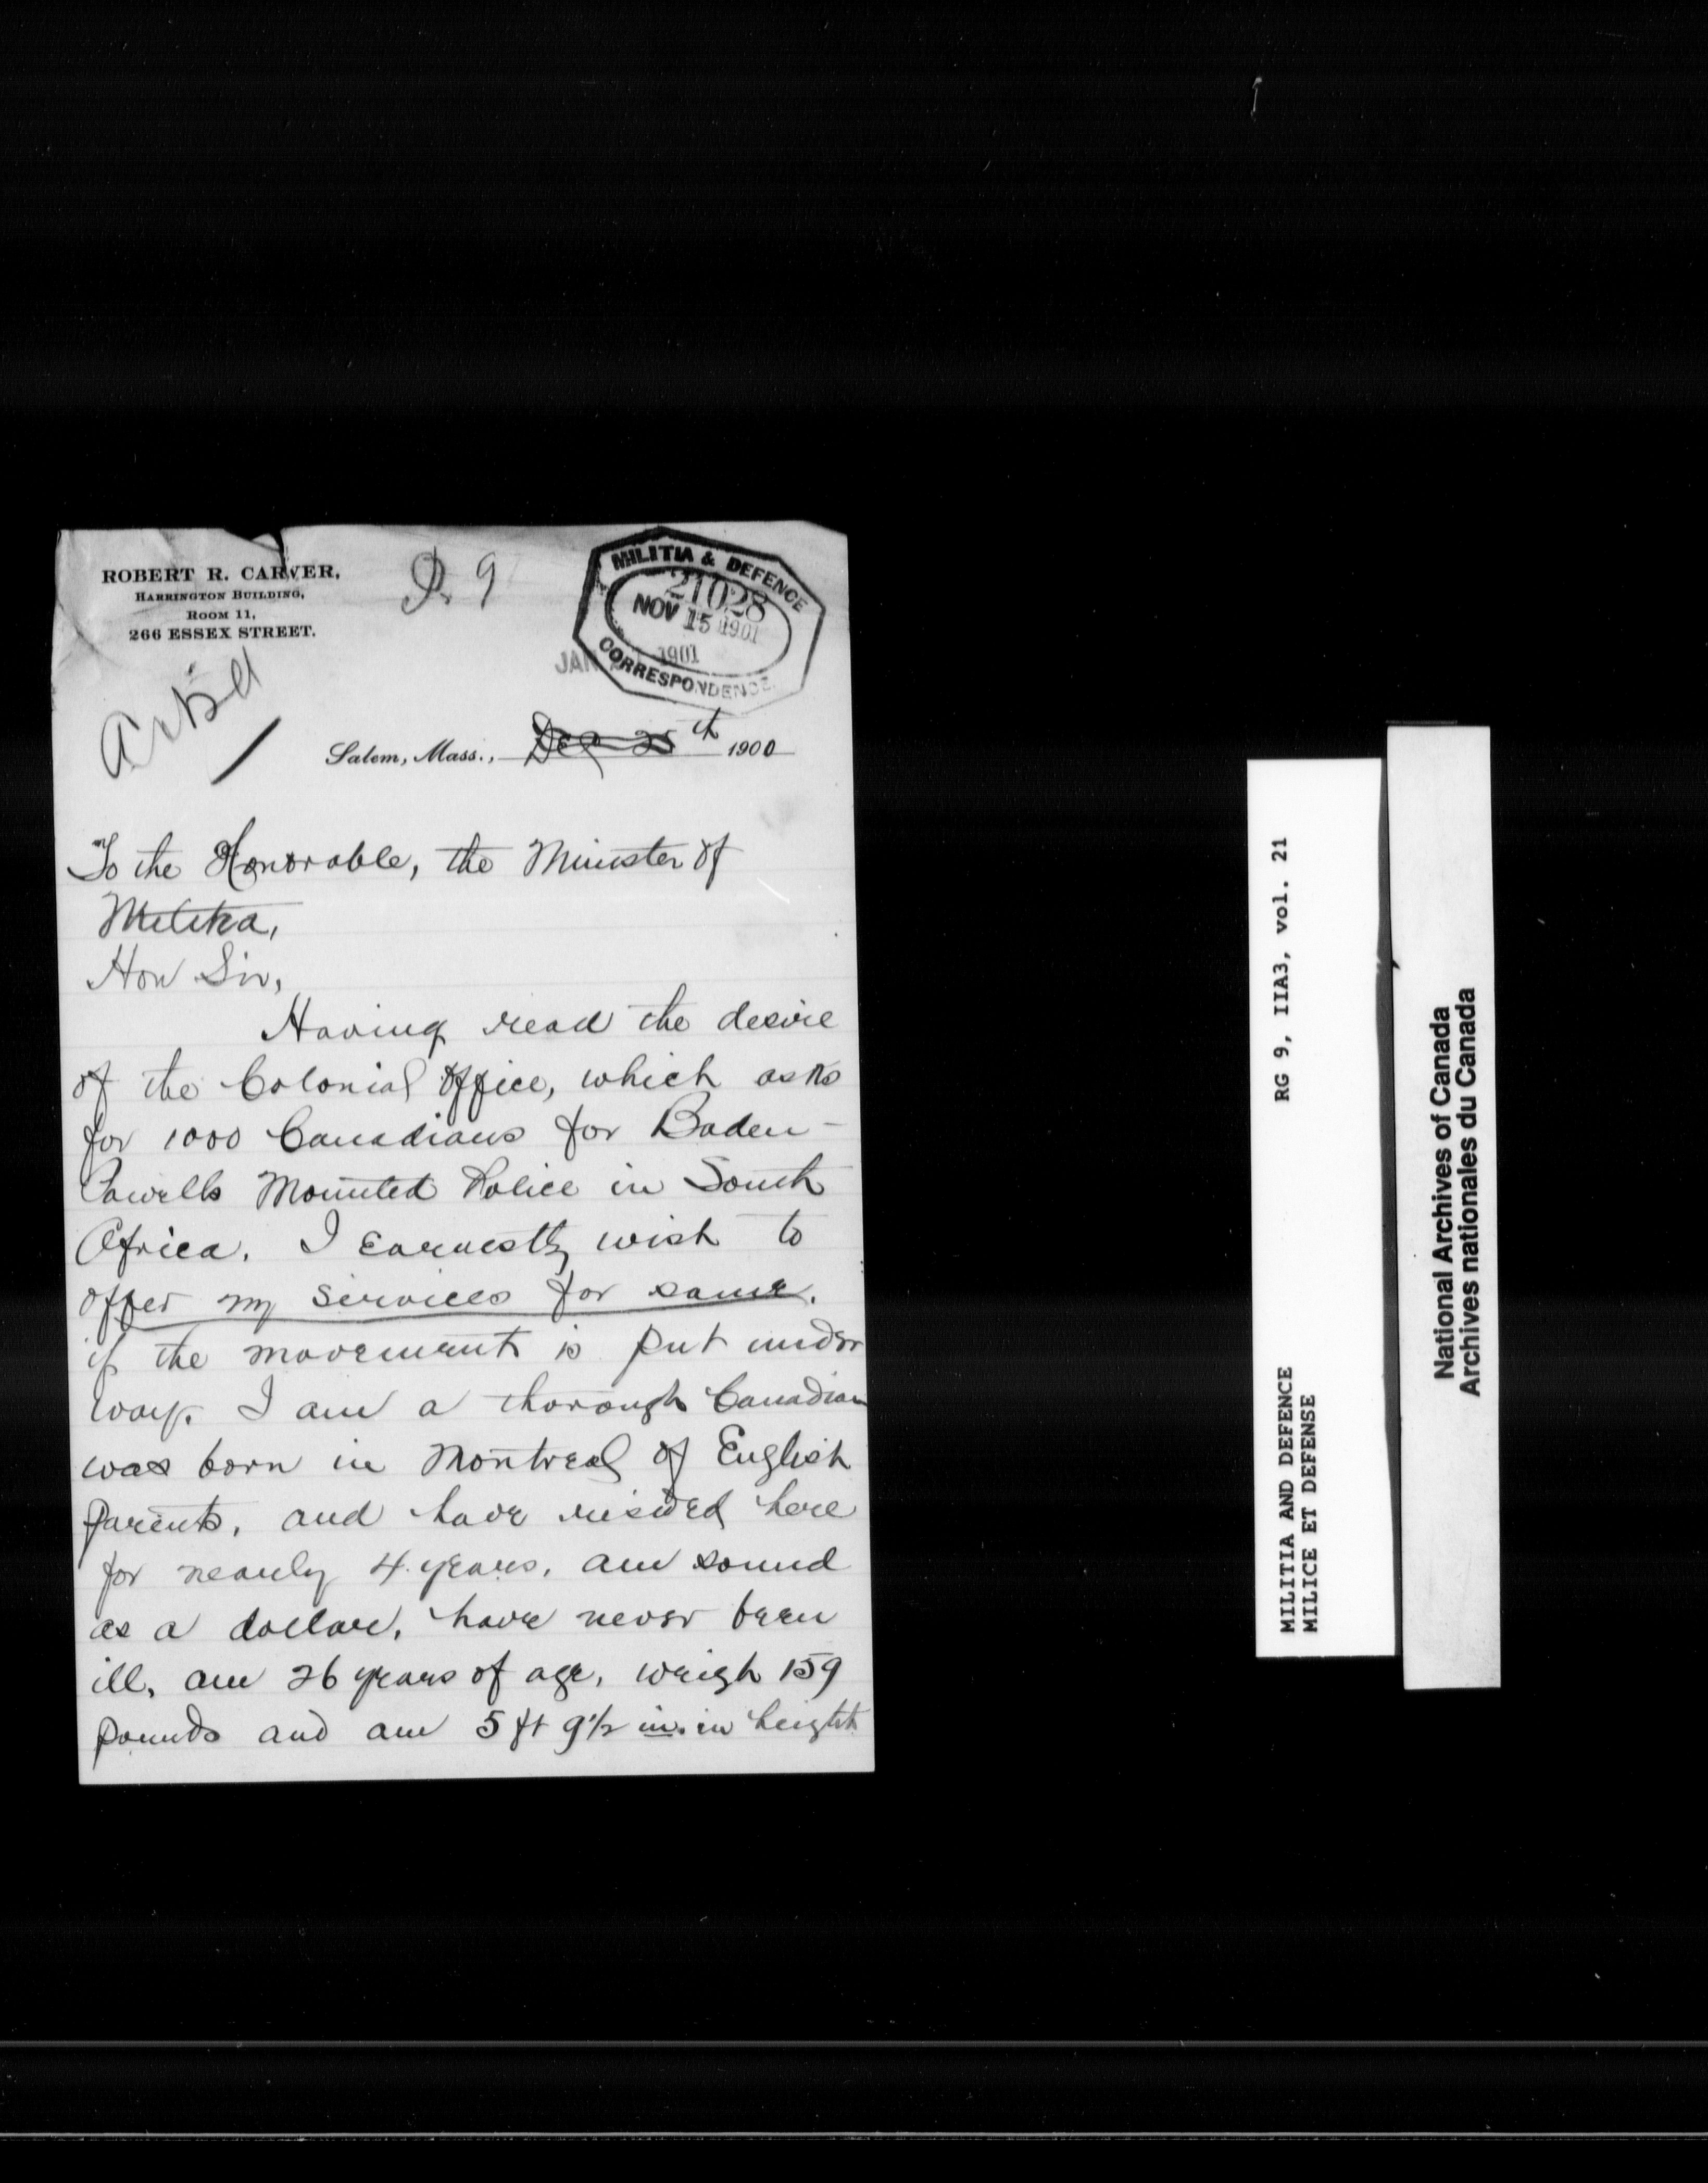 ROBERT R. CARVER,
HARRINGTON BUILDING,
ROOM 11,
266 ESSEX STREET.
9
MILITIA & DEFENCE
21028
NOV 15 1901
JAN 1901
CORRESPONDENCE
Salem, Mass., Dec 25th 1900
To the Honorable, the Minister of
Militia,
Hon Sir,
Having read the desire
of the Colonial Office, which asks
for 1000 Canadians for Baden-
Powells Mounted Police in South
Africa. I earnestly wish to
offer my services for same.
if the movement is put under
way. I am a thorough Canadian
was born in Montreal of English
parents, and have resided here
for nearly 4 years, am sound
as a dollar, have never been
ill, am 26 years of age, weigh 159
pounds and am 5 ft 9½ in. in height
RG 9, IIA3, vol. 21
MILITIA AND DEFENCE
MILICE ET DEFENSE
National Archives of Canada
Archives nationales du Canada